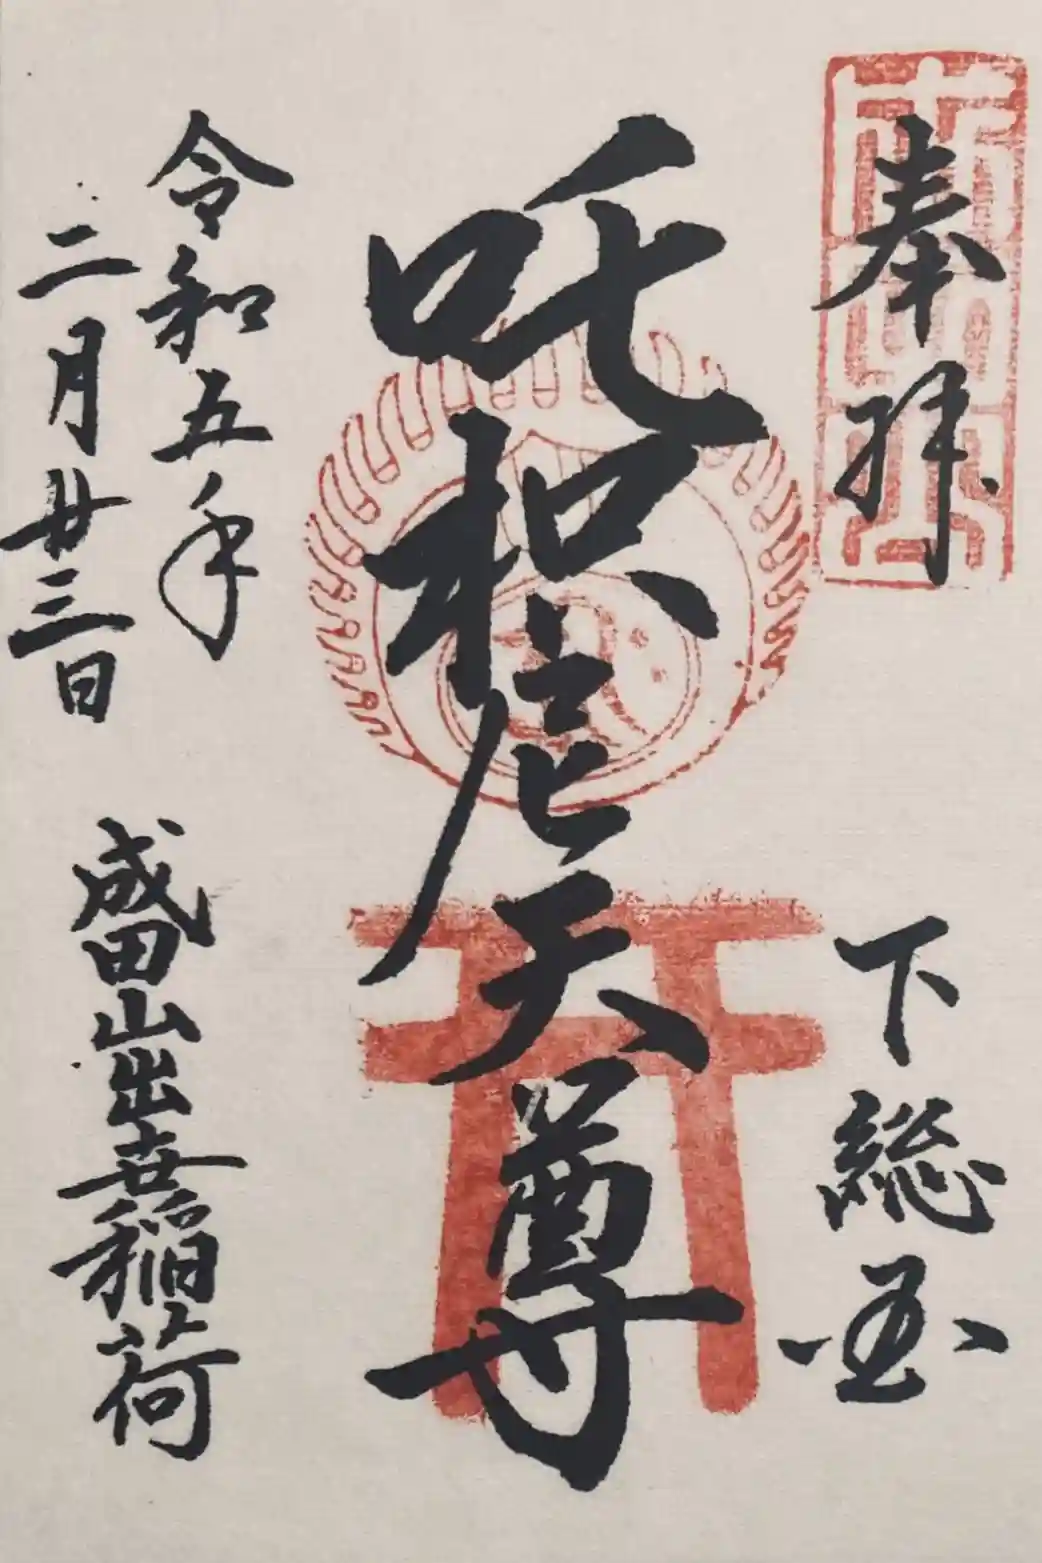 奉拝
下総国
吒枳尼天尊
令和五年
二月廿三日
成田山出世稲荷